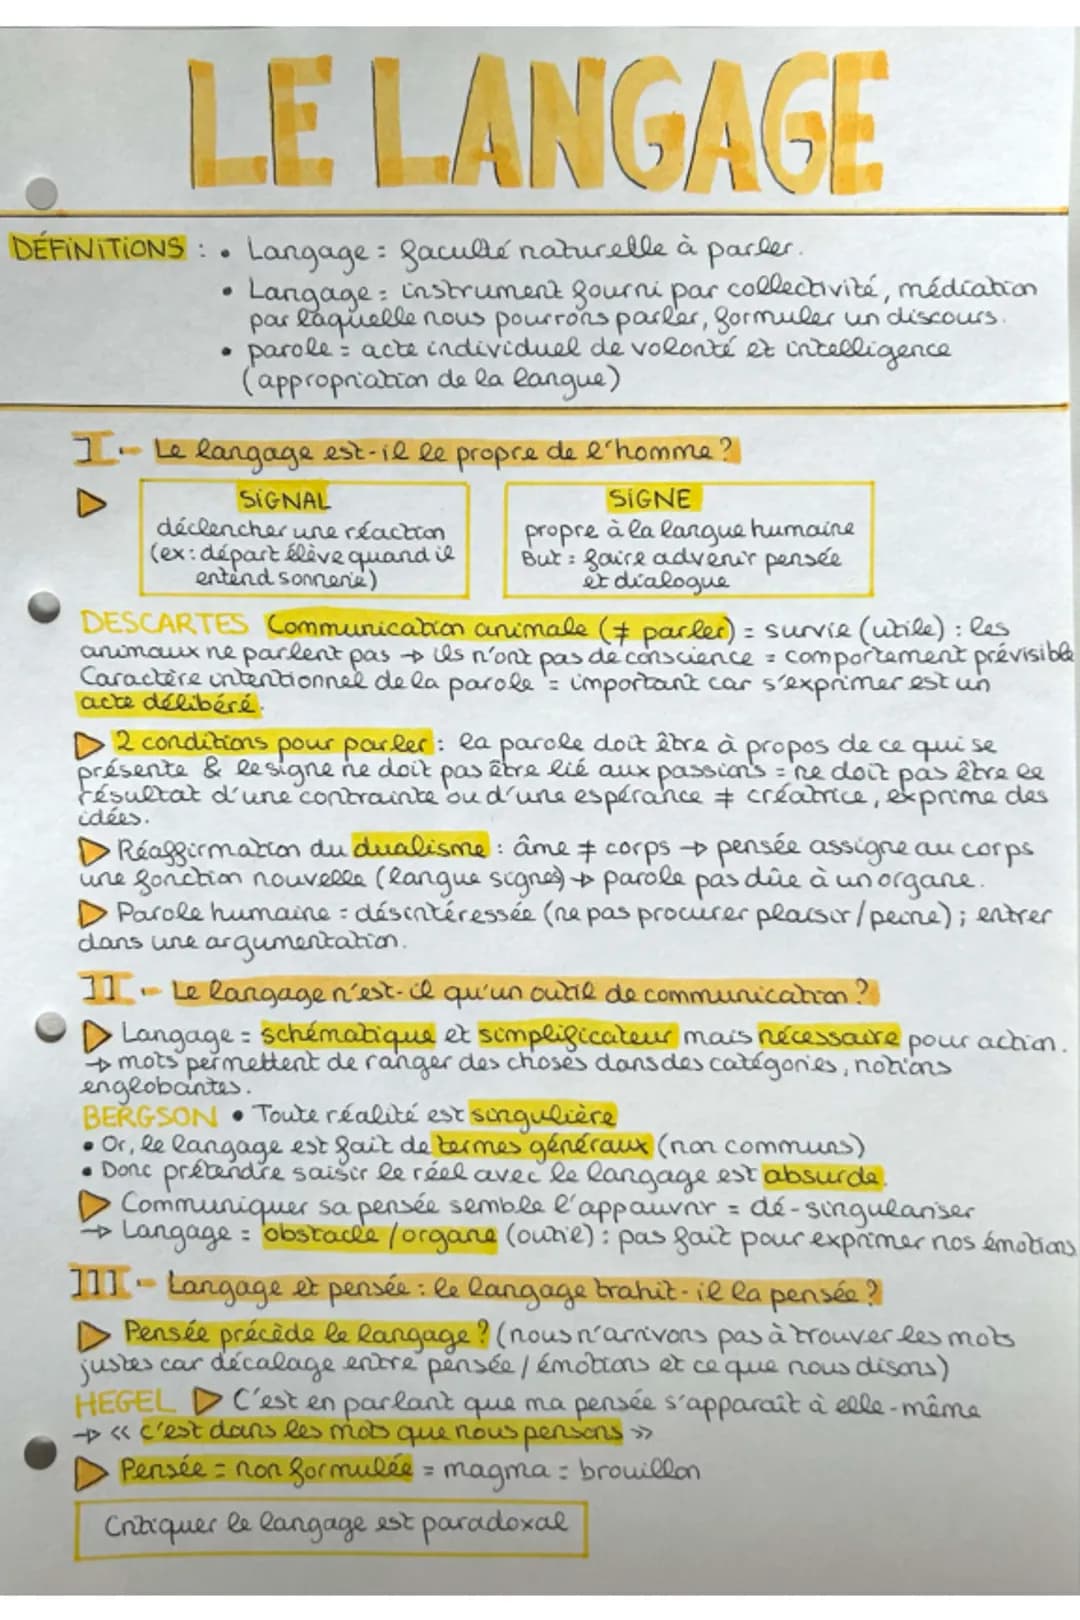 LE LANGAGE
DÉFINITIONS : • Langage = faculté naturelle à parler.
• Langage = instrument fourni par collectivité, médiation
par laquelle nous pourrons parler, formuler un discours.
• parole = acte individuel de volonté et intelligence
(appropriation de la langue)
I - Le langage est-il le propre de l'homme ?
SIGNAL
déclencher une réaction
(ex : départ élève quand il
entend sonnerie)
SIGNE
propre à la langue humaine
But : faire advenir pensée
et dialogue
DESCARTES Communication animale (≠ parler) = survie (utile) : les
animaux ne parlent pas → ils n'ont pas de conscience = comportement prévisible
Caractère intentionnel de la parole = important car s'exprimer est un
acte délibéré.
▷ 2 conditions pour parler : la parole doit être à propos de ce qui se
présente & le signe ne doit pas être lié aux passions = ne doit pas être le
résultat d'une contrainte ou d'une espérance ≠ créatrice, exprime des
idées.
▷ Réaffirmation du dualisme : âme ≠ corps → pensée assigne au corps
une fonction nouvelle (langue signes) → parole pas dûe à un organe.
▷ Parole humaine = désintéressée (ne pas procurer plaisir/peine) ; entrer
dans une argumentation.
II - Le langage n'est-il qu'un outil de communication ?
▷ Langage = schématique et simplificateur mais nécessaire pour action.
→ mots permettent de ranger des choses dans des catégories, notions
englobantes.
BERGSON • Toute réalité est singulière
• Or, le langage est fait de termes généraux (non communs)
• Donc prétendre saisir le réel avec le langage est absurde.
▷ Communiquer sa pensée semble l'appauvrir = dé-singulariser
→ Langage = obstacle/organe (outil) : pas fait pour exprimer nos émotions
III - Langage et pensée : le langage trahit-il la pensée ?
▷ Pensée précède le langage ? (nous n'arrivons pas à trouver les mots
justes car décalage entre pensée / émotions et ce que nous disons)
HEGEL ▷ C'est en parlant que ma pensée s'apparaît à elle-même
→ « c'est dans les mots que nous pensons »
▷ Pensée = non formulée = magma = brouillon
Critiquer le langage est paradoxal